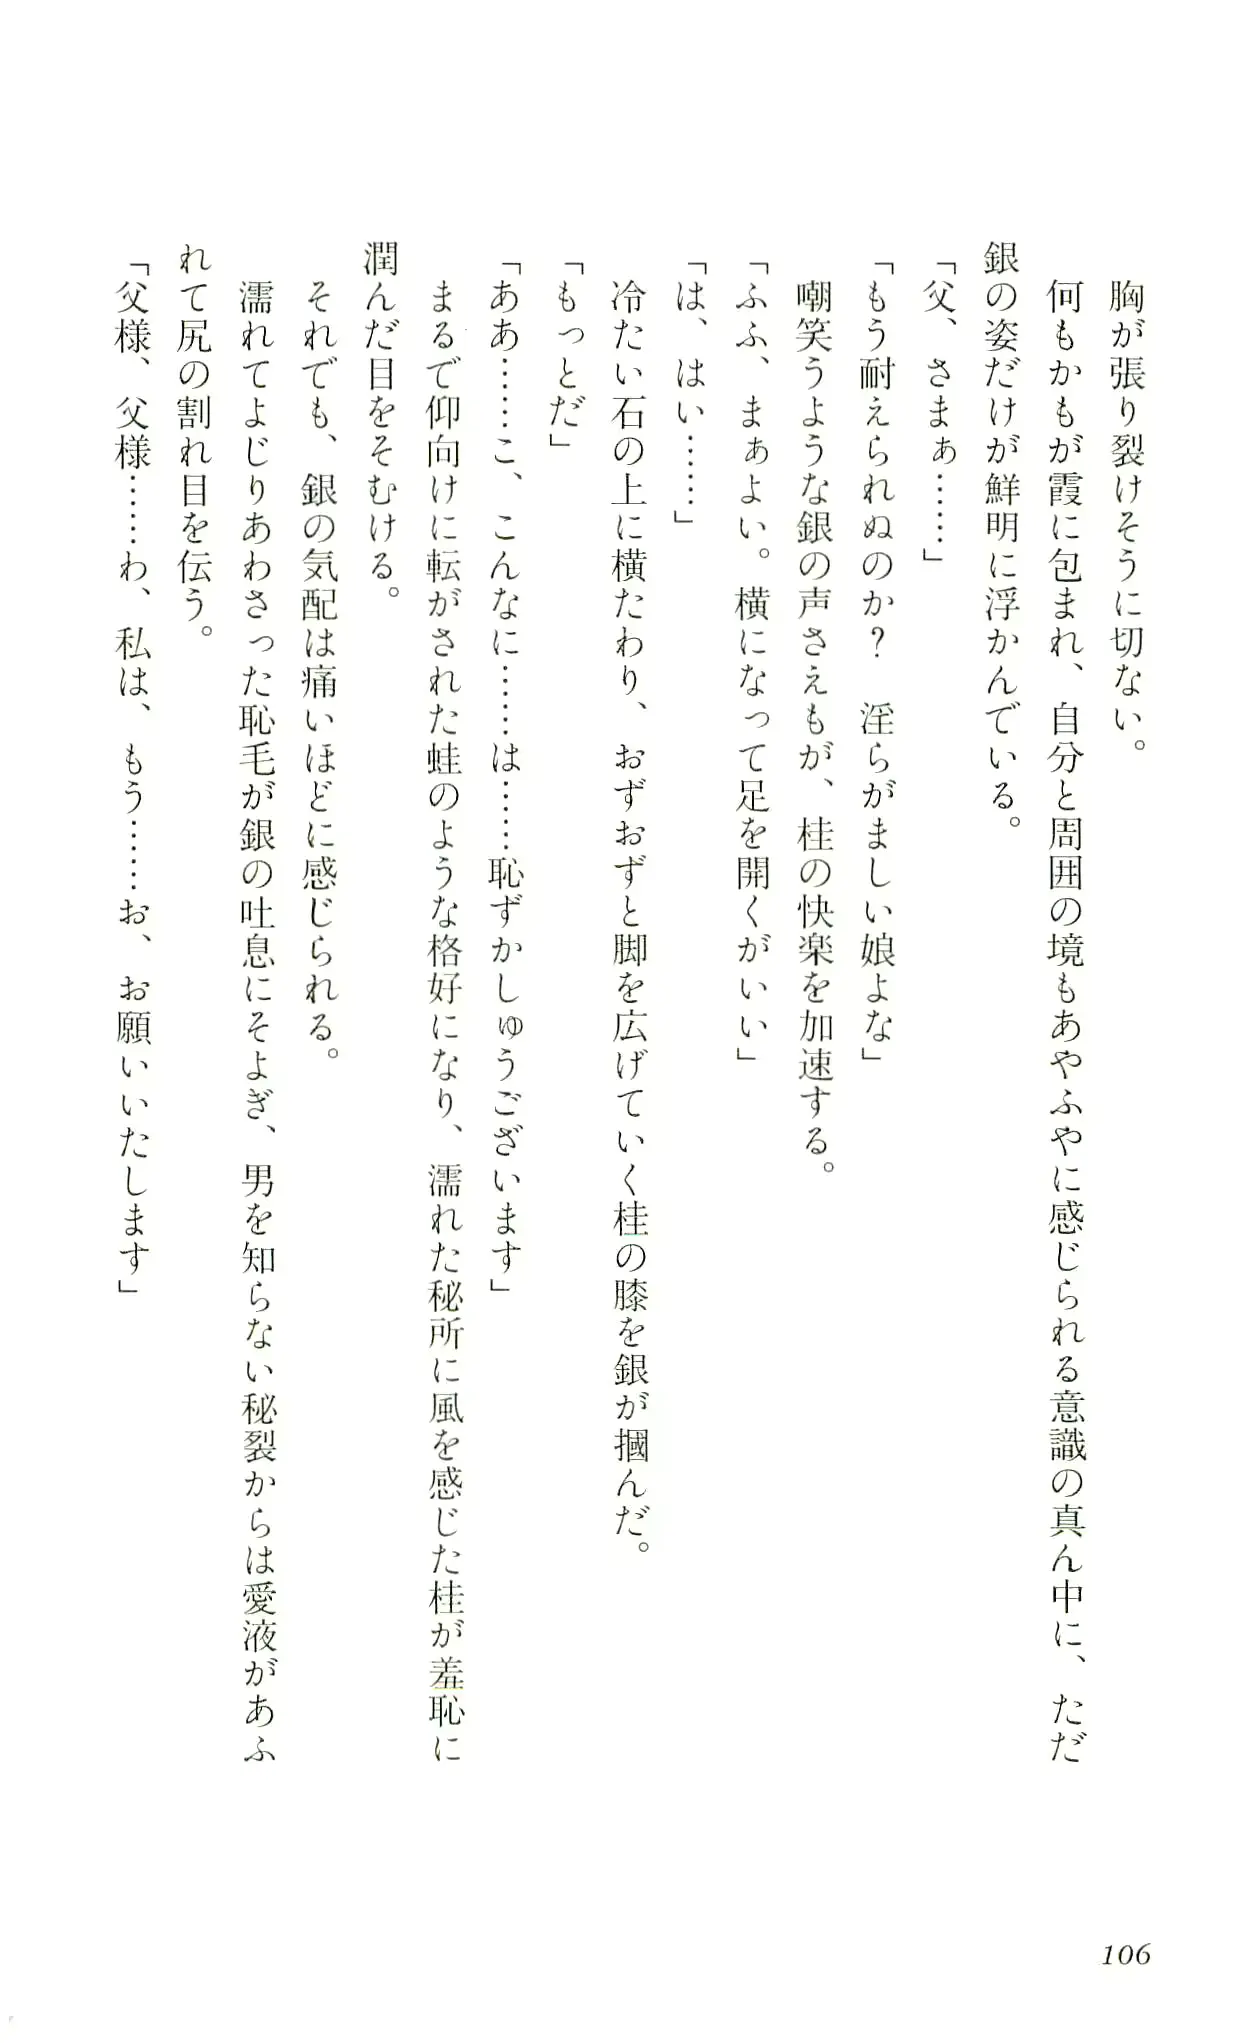 胸が張り裂けそうに切ない。
何もかもが霞に包まれ、自分と周囲の境もあやふやに感じられる意識の真ん中に、ただ
銀の姿だけが鮮明に浮かんでいる。
「父、さまぁ……」
「もう耐えられぬのか？　淫らがましい娘よな」
嘲笑うような銀の声さえもが、桂の快楽を加速する。
「ふふ、まぁよい。横になって足を開くがいい」
「は、はい……」
冷たい石の上に横たわり、おずおずと脚を広げていく桂の膝を銀が摑んだ。
「もっとだ」
「ああ……こ、こんなに……は……恥ずかしゅうございます」
まるで仰向けに転がされた蛙のような格好になり、濡れた秘所に風を感じた桂が羞恥に
潤んだ目をそむける。
それでも、銀の気配は痛いほどに感じられる。
濡れてよじりあわさった恥毛が銀の吐息にそよぎ、男を知らない秘裂からは愛液があふ
れて尻の割れ目を伝う。
「父様、父様……わ、私は、もう……お、お願いいたします」
106